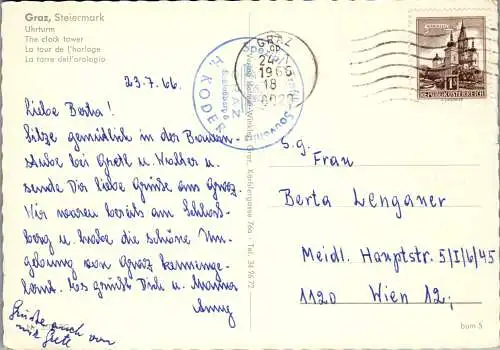 Graz, Steiermark
Uhrturm
The clock tower
La tour de l'horloge
La torre dell'orologio
23.7.66
Liebe Berta!
Sitze gemütlich in der Bauern-
stube bei Grete u. Walter u.
sende Dir liebe Grüße aus Graz.
Wir waren bereits am Schloß-
berg u. habe die schöne Um-
gebung von Graz kennenge-
lernt. Es grüßt Dich u.
Grüße auch von
mir Grete
H. KODER
GRAZ
1966
18
REPUBLIK ÖSTERREICH
s.g.
Frau
Berta Lenganer
Meidl. Hauptstr. 5/I/6/45
1120 Wien 12;
bum 5